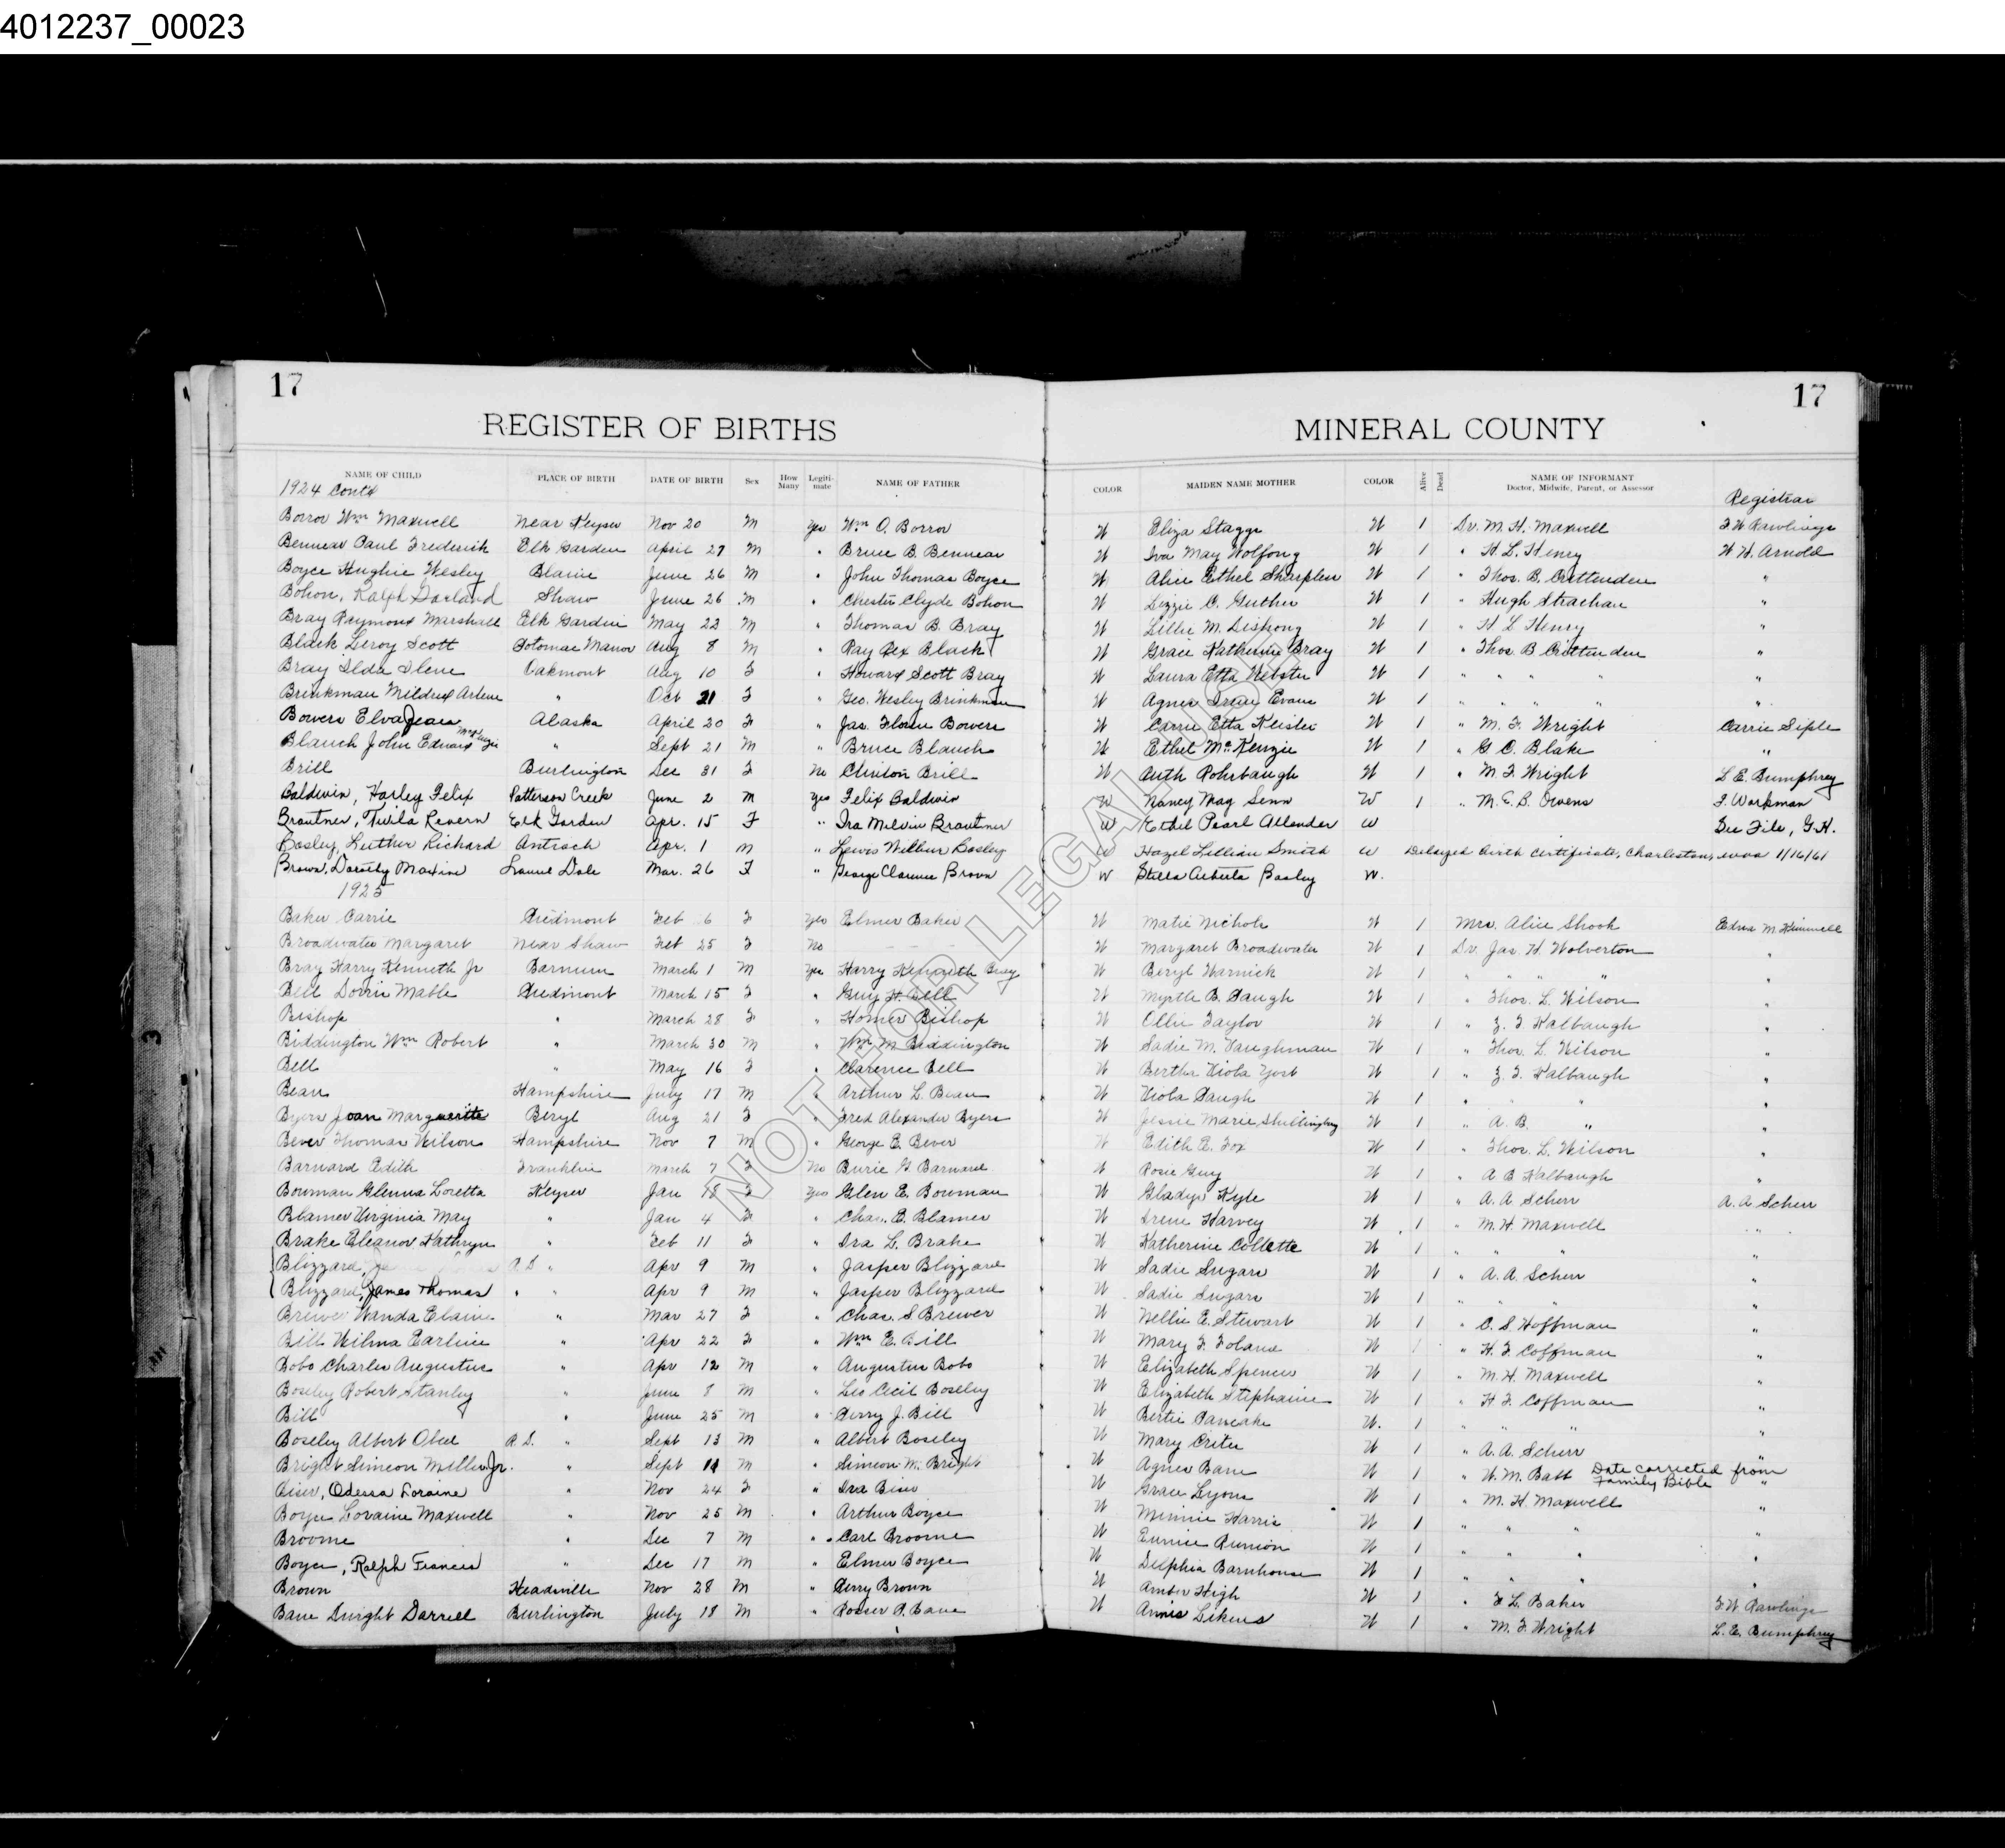 4012237_00023
17 17
REGISTER OF BIRTHS MINERAL COUNTY
NAME OF CHILD PLACE OF BIRTH DATE OF BIRTH Sex How Many Legiti-mate NAME OF FATHER COLOR MAIDEN NAME MOTHER COLOR Alive Dead NAME OF INFORMANT Doctor, Midwife, Parent, or Assessor Registrar
1924 Contd
Borror Wm Maxwell Near Keyser Nov 20 M Yes Wm O. Borror W Eliza Staggs W 1 Dr. M. H. Maxwell F W Rawlings
Bennear Paul Frederick Elk Garden April 27 M " Bruce B. Bennear W Iva May Wolfong W 1 " H. L. Henry W H. Arnold
Boyce Hughie Wesley Blaine June 26 M " John Thomas Boyce W Alice Ethel Sharpless W 1 " Thos. B. Crittenden "
Bohon, Ralph Garland Shaw June 26 M " Chester Clyde Bohon W Lizzie C. Guthrie W 1 " Hugh Strachan "
Bray Raymond Marshall Elk Garden May 22 M " Thomas B. Bray W Lillie M. Dishong W 1 " H L Henry "
Black Leroy Scott Potomac Manor Aug 8 M " Ray Rex Black W Grace Katherine Bray W 1 " Thos. B Crittenden "
Bray Ilda Ilene Oakmont Aug 10 F " Howard Scott Bray W Laura Etta Webster W 1 " " " " "
Brinkman Mildred Arlene " Oct 21 F " Geo. Wesley Brinkman W Agnes Irene Evans W 1 " " " " "
Bowers Elva Jean Alaska April 20 F " Jas. Bowers W Carrie Etta Keister W 1 " M. F. Wright Carrie Siple
Blauch John Edward McKenzie " Sept 21 M " Bruce Blauch W Ethel McKenzie W 1 " G. O. Blake "
Brill Burlington Dec 31 F No Clinton Brill W Ruth Rohrbaugh W 1 " M. F. Wright L. E. Bumphrey
Baldwin, Harley Felix Patterson Creek June 2 M Yes Felix Baldwin W Nancy May Senn W 1 " M. E. B. Owens F. Workman
Brautner, Twila Revern Elk Garden Apr. 15 F " Ira Melvin Brautner W Ethel Pearl Allender W See File, G.H.
Bosley, Luther Richard Antioch Apr. 1 M " Lewis Wilbur Bosley W Hazel Lillian Smith W Delayed Birth Certificate, Charleston, W.Va 1/16/61
Brown, Dorothy Maxine Laurel Dale Mar. 26 F " George Clarence Brown W Stella Alberta Bosley W.
1925
Baker Carrie Piedmont Feb 6 F Yes Elmer Baker W Matie Nichols W 1 Mrs. Alice Shook Edna M. Kimmell
Broadwater Margaret Near Shaw Feb 25 F No W Margaret Broadwater W 1 Dr. Jas. H. Wolverton "
Bray Harry Kenneth Jr Barnum March 1 M Yes Harry Kenneth Bray W Beryl Warnick W 1 " " " " "
Bell Dorris Mable Piedmont March 15 F " Guy H. Bell W Myrtle B. Paugh W 1 " Thos. L. Wilson "
Bishop " March 28 F " Homer Bishop W Ollie Taylor W 1 " Z. T. Kalbaugh "
Biddington Wm Robert " March 30 M " Wm M Biddington W Sadie M. Baughman W 1 " Thos. L. Wilson "
Bell " May 16 F " Clarence Bell W Bertha Viola Yost W 1 " Z. T. Kalbaugh "
Bean Hampshire July 17 M " Arthur L. Bean W Viola Paugh W 1 " " "
Byers Joan Marguerite Beryl Aug 21 F " Fred Alexander Byers W Jessie Marie Shillingburg W 1 " A. B. " "
Bever Thomas Wilson Hampshire Nov 7 M " George E. Bever W Edith E. Fox W 1 " Thos. L. Wilson "
Barnard Edith Franklin March 7 F No Burie G Barnard W Rosie Guy W 1 " A B Kalbaugh "
Bowman Glenna Loretta Keyser Jan 18 F Yes Glen E. Bowman W Gladys Kyle W 1 " A. A. Scherr A. A Scherr
Blamer Virginia May " Jan 4 F " Chas. E. Blamer W Irene Harvey W 1 " M. H. Maxwell "
Brake Eleanor Kathryn " Feb 11 F " Ira L. Brake W Katherine Collette W 1 " " " "
Blizzard, R. D. " Apr 9 M " Jasper Blizzard W Sadie Sugars W 1 " A. A. Scherr "
Blizzard, James Thomas " " Apr 9 M " Jasper Blizzard W Sadie Sugars W 1 " " " "
Brewer Wanda Elaine " Mar 27 F " Chas. S Brewer W Nellie E. Stewart W 1 " C. S. Hoffman "
Bill Wilma Earline " Apr 22 F " Wm E. Bill W Mary F. Toland W 1 " H. F. Coffman "
Bobo Charles Augustus " Apr 12 M " Augustus Bobo W Elizabeth Spencer W 1 " M. H. Maxwell "
Boseley Robert Stanley " June 8 M " Leo Cecil Boseley W Elizabeth Stephanie W 1 " H F. Coffman "
Bill " June 25 M " Perry J. Bill W Bertie Pancake W. 1 " " " "
Boseley Albert Obed R. D. " Sept 13 M " Albert Boseley W Mary Crites W 1 " A. A. Scherr "
Bright Simeon Miller Jr. " Sept 11 M " Simeon M. Bright W Agnes Bane W 1 " W. M. Babb Date corrected from Family Bible "
Biser, Odessa Loraine " Nov 24 F " Ira Biser W Grace Lyons W 1 " M. H. Maxwell "
Boyce Loraine Maxwell " Nov 25 M " Arthur Boyce W Minnie Harris W 1 " " " "
Broome " Dec 7 M " Carl Broome W Eunice Runion W 1 " " " "
Boyce, Ralph Francis " Dec 17 M " Elmer Boyce W Delphia Barnhouse W 1 " " " "
Brown Headsville Nov 28 M " Perry Brown W Amber High W 1 " F L. Baker F W Rawlings
Bane Dwight Darrell Burlington July 18 M " Rosser P. Bane W Annis Likens W 1 " M. F. Wright L. E. Bumphrey
NOT FOR LEGAL USE